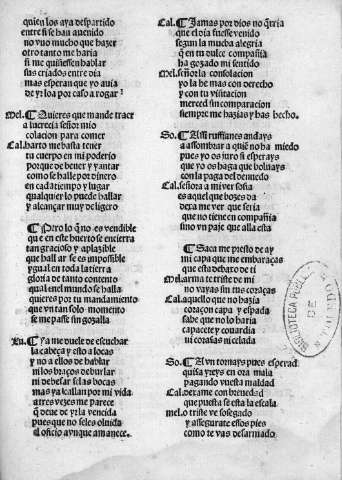 quien los aya despartido
entre si se han auenido
no vuo mucho que hazer
otro tanto me haria
si me quisiessen hablar
sus criados entre dia
mas esperan que yo auia
de yrlha por caso a rogar
Mel. ¶ Quieres que mande traer
a lucrecia señor mio
colacion para comer
Cal. harto me basta tener
tu cuerpo en mi poderio
porque de beuer y yantar
como se halle por dinero
en cada tiempo y lugar
qualquier lo puede hallar
y alcançar muy de ligero
¶ Pero lo q̃ no es vendible
que en este huerto se encierra
tan gracioso y aplazible
que hallar se es impossible
ygual en toda la tierra
gloria de tanto contento
qual en el mundo se halla
quieres por tu mandamiento
que vn tan solo momento
se me passe sin gozalla
Lu. ¶ Ya me duele de escuchar
la cabeça y esto a locas
y no a ellos de hablar
ni los braços de burlar
ni de besar se las bocas
mas ya callan por mi vida
a tres vezes me parece
q̃ deue de yr la vencida
pues que no se les oluida
el oficio aunque amanece.
Cal. ¶ Jamas por dios no q̃rria
que el dia fuesse venido
segun la mucha alegria
q̃ en tu dulce compañia
ha gozado mi sentido
Mel. señor la consolacion
yo la he mas con derecho
y con tu visitacion
merced sin comparacion
siempre me hazias y has hecho.
So. ¶ Assi ruffianes andays
a assombrar a quiẽ no ha miedo
pues yo os juro si esperays
que yo os haga que boluays
con la paga del denuedo
Cal. señora a mi ver sosia
es aquel que bozes da
dexa me ver que seria
que no tiene en compañia
sino vn paje que alla esta
¶ Saca me presto de ay
mi capa que me embaraças
que esta debaxo de ti
Mel. arma te triste de mi
no vayas sin tus coraças
Cal. aquello que no hazia
coraçon capa y espada
sabe que no lo haria
capacete y couardia
ni coraças ni celada
So. ¶ Al vn tornays pues esperad
quiça yreys en ora mala
pagando vuestra maldad
Cal. dexame con breuedad
que puesta se esta la escala.
Mel. o triste ve sosegado
y assegurate essos pies
como te vas desarmado
BIBLIOTECA
DE